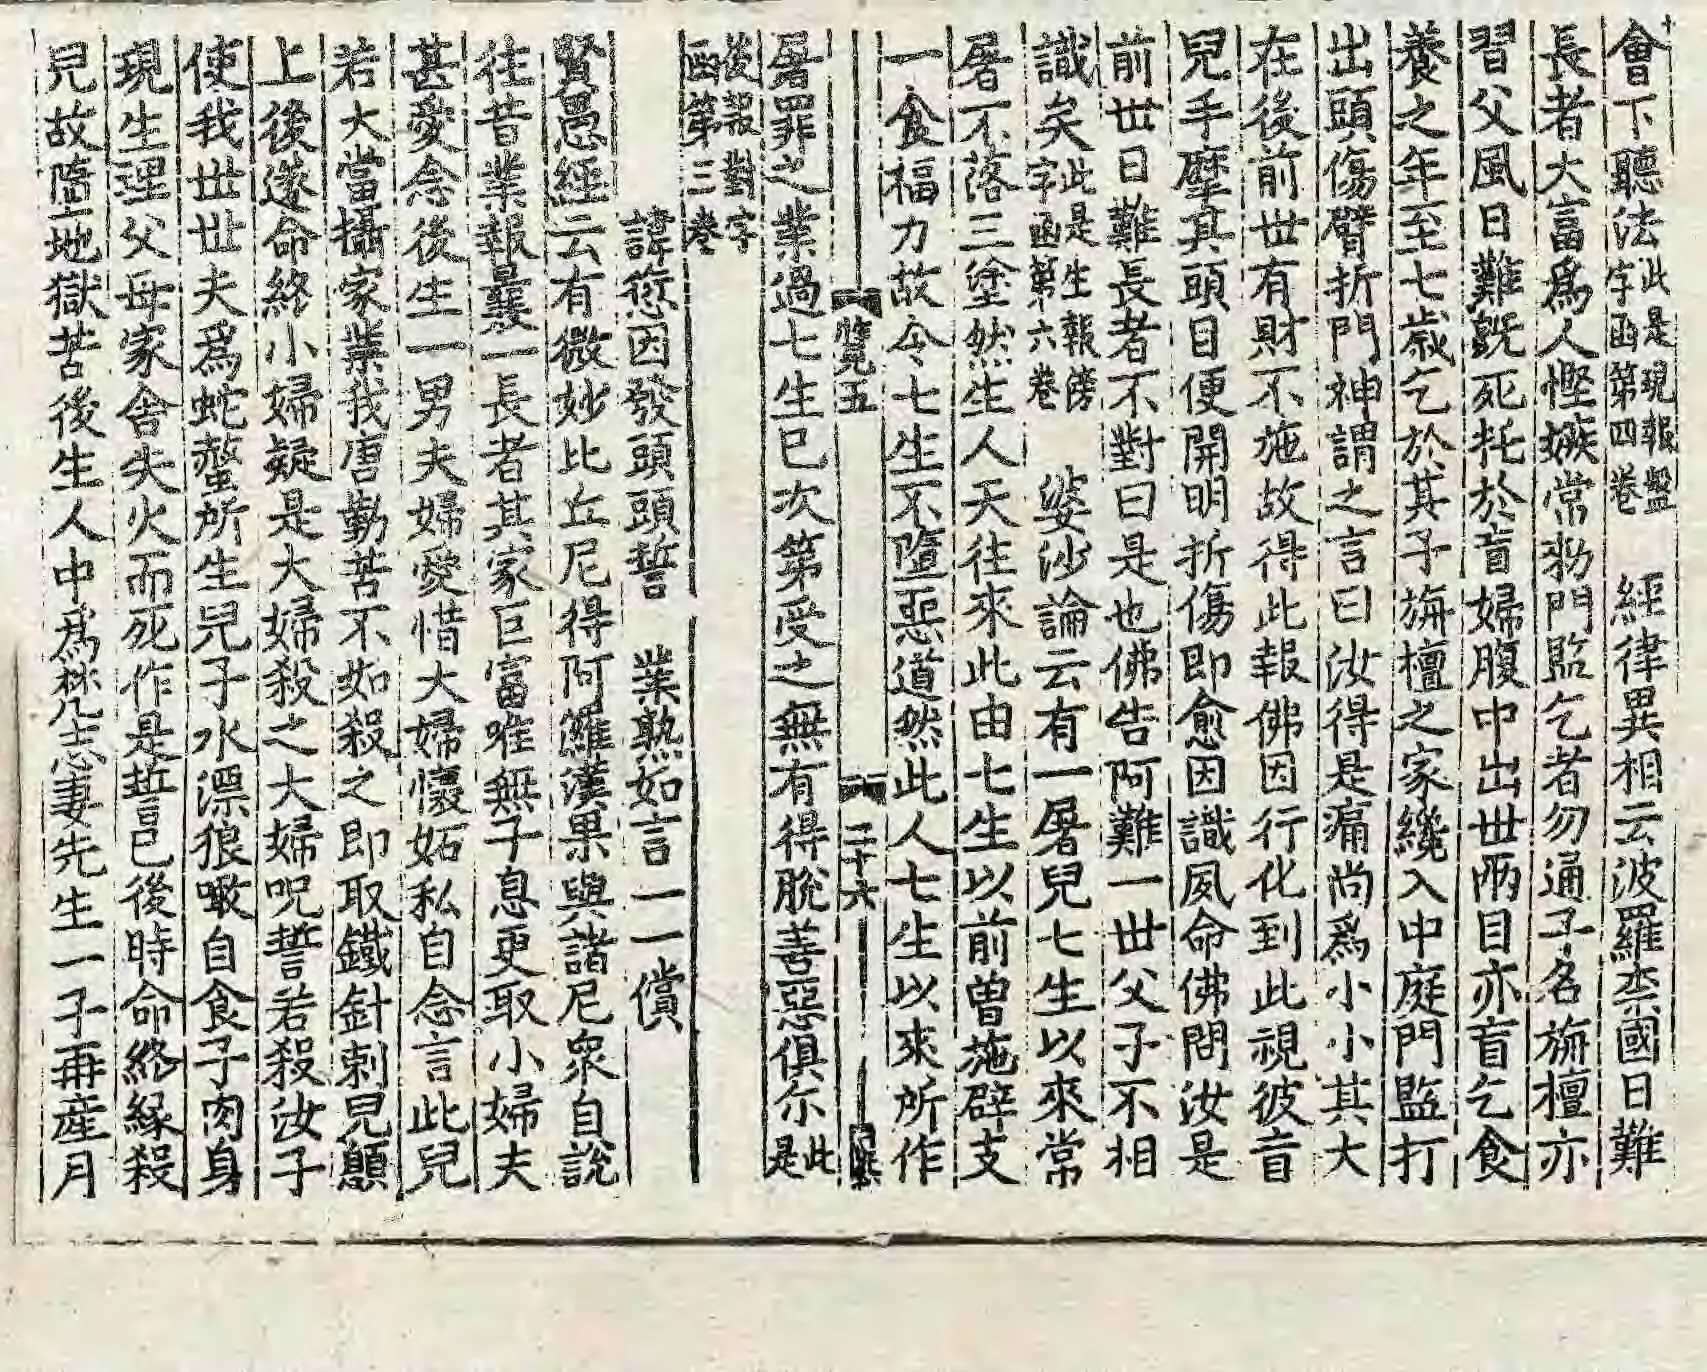 會下聽法此是現報盤字函第四卷　經律異相云波羅柰國曰難
長者大富爲人慳嫉常勑門監乞者勿通子名旃檀亦
習父風日難旣死托於盲婦腹中出世兩目亦盲乞食
養之年至七歲乞於其子旃檀之家纔入中庭門監打
出頭傷臂折門神謂之言曰汝得是痛尚爲小小其大
在後前世有財不施故得此報佛因行化到此視彼盲
兒手摩其頭目便開明折傷即愈因識夙命佛問汝是
前世日難長者不對曰是也佛告阿難一世父子不相
識矣此是生報傍字函第六卷　婆沙論云有一屠兒七生以來常
屠不落三塗然生人天往來此由七生以前曾施辟支
一食福力故令七生不墮惡道然此人七生以來所作
覽五　二十六
屠罪之業過七生已次第受之無有得脫善惡俱尒此是
後報對字函第三卷
諱愆因發頭頭誓　業熟如言一一償
賢愚經云有微妙比丘尼得阿羅漢果與諸尼衆自說
往昔業報曩一長者其家巨富唯無子息更取小婦夫
甚愛念後生一男夫婦愛惜大婦懷妬私自念言此兒
若大當攝家業我唐勤苦不如殺之即取鐵針刺兒顖
上後遂命終小婦疑是大婦殺之大婦呪誓若殺汝子
使我世世夫爲蛇螫所生兒子水漂狼噉自食子肉身
現生理父母家舍失火而死作是誓已後時命終緣殺
兒故墮地獄苦後生人中爲梵志妻先生一子再産月